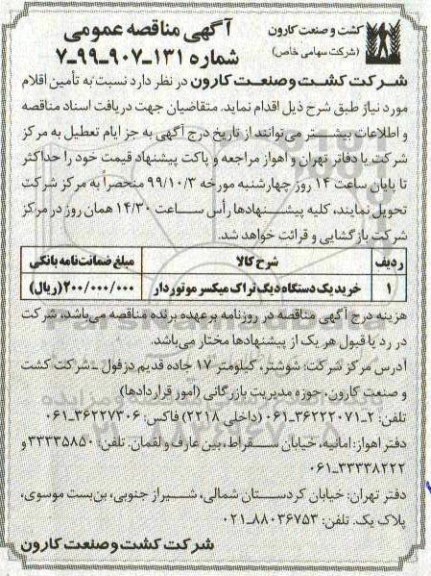 کشت و صنعت کارون
(شرکت سهامی خاص)
آگهی مناقصه عمومی
شماره ۱۳۱-۹۰۷-۹۹-۷
شرکت کشت و صنعت کارون در نظر دارد نسبت به تأمین اقلام
مورد نیاز طبق شرح ذیل اقدام نماید. متقاضیان جهت دریافت اسناد مناقصه
و اطلاعات بیشتر می‌توانند از تاریخ درج آگهی به جز ایام تعطیل به مرکز
شرکت یا دفاتر تهران و اهواز مراجعه و پاکت پیشنهاد قیمت خود را حداکثر
تا پایان ساعت ۱۴ روز چهارشنبه مورخه ۹۹/۱۰/۳ منحصراً به مرکز شرکت
تحویل نمایند، کلیه پیشنهادها رأس ساعت ۱۴/۳۰ همان روز در مرکز
شرکت بازگشایی و قرائت خواهد شد.
ردیف شرح کالا مبلغ ضمانت‌نامه بانکی
۱ خرید یک دستگاه دیگ تراک میکسر موتوردار ۲۰۰/۰۰۰/۰۰۰(ریال)
هزینه درج آگهی مناقصه در روزنامه بر عهده برنده مناقصه می‌باشد، شرکت
در رد یا قبول هر یک از پیشنهادها مختار می‌باشد.
آدرس مرکز شرکت: شوشتر، کیلومتر ۱۷ جاده قدیم دزفول - شرکت کشت
و صنعت کارون. حوزه مدیریت بازرگانی (امور قراردادها)
تلفن: ۲-۳۶۲۲۲۰۷۱-۰۶۱ (داخلی ۲۲۱۸) فاکس: ۳۶۲۲۷۳۰۶-۰۶۱
دفتر اهواز: امانیه، خیابان سقراط، بین عارف و لقمان. تلفن: ۳۳۳۳۵۸۵۰ و
۳۳۳۳۸۲۲۲-۰۶۱
دفتر تهران: خیابان کردستان شمالی، شیراز جنوبی، بن‌بست موسوی،
پلاک یک. تلفن: ۸۸۰۳۶۷۵۳-۰۲۱
شرکت کشت و صنعت کارون